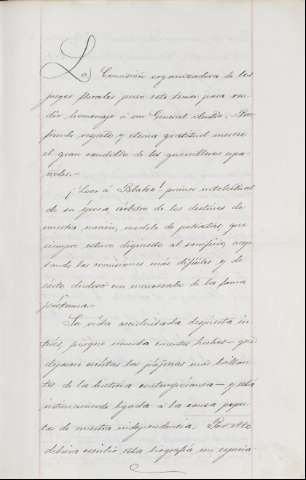 La Comisión organizadora de los
juegos florales para este tema, para ren-
dir homenaje á un General ilustre. Pro-
fundo respeto y eterna gratitud merece
el gran caudillo de los guerrilleros espa-
ñoles.
¡Loor á                primer intelectual
de su época, árbitro de los destinos de
nuestra nación, modelo de patriotas, que
siempre estuvo dispuesto al sacrificio, acep-
tando las comisiones más difíciles y de
éxito dudoso en menoscabo de la fama
póstuma.
Su vida accidentada despierta in-
terés, porque                hechos - que
dejaron                las páginas más brillan-
tes de la historia contemporánea - y está
íntimamente ligada á la causa popu-
lar de nuestra independencia. Por ello
debiera escribir esta biografía, un